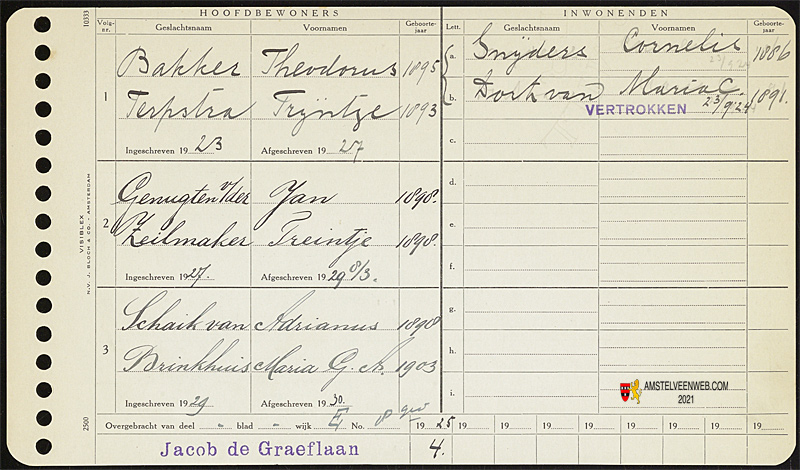 HOOFDBEWONERS
INWONENDEN
Volg-nr. Geslachtsnaam Voornamen Geboorte-jaar Lett. Geslachtsnaam Voornamen Geboorte-jaar
10333
1
Bakker Theodorus 1895
Terpstra Trijntje 1893
Ingeschreven 1923 Afgeschreven 1927
a. Snijders Cornelis 1886
b. Dort van Maria C. 1891.
VERTROKKEN 23/9 '24
c.
2
Genugten v/der Jan 1898.
Zeilmaker Treintje 1898.
Ingeschreven 1927. Afgeschreven 1929 8/3.
d.
e.
f.
3
Schaik van Adrianus 1898
Brinkhuis Maria G. A. 1903
Ingeschreven 1929 Afgeschreven 1930.
g.
h.
i.
VISIBLEX
N.V. J. BLOCH & CO. - AMSTERDAM
2500
AMSTELVEENWEB.COM
2021
Overgebracht van deel - blad - wijk E No. 8 1925 19 19 19 19 19 19 19
Jacob de Graeflaan 4.